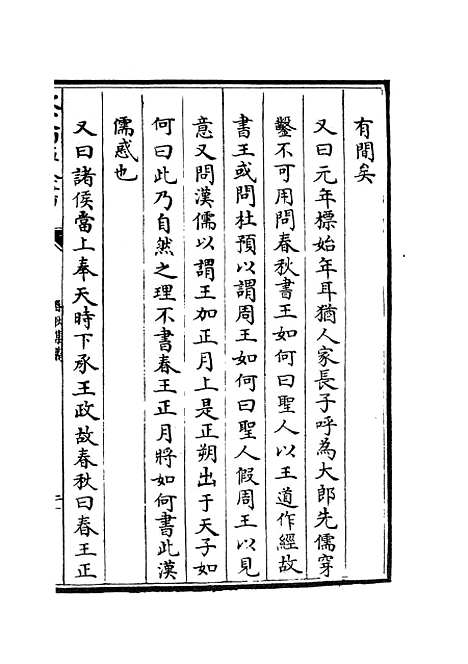 有間矣
又曰元年標始年耳猶人家長子呼為大郎先儒穿
鑿不可用問春秋書王如何曰聖人以王道作經故
書王或問杜預以謂周王如何曰聖人假周王以見
意又問漢儒以謂王加正月上是正朔出于天子如
何曰此乃自然之理不書春王正月將如何書此漢
儒惑也
又曰諸侯當上奉天時下承王政故春秋曰春王正
春秋集義